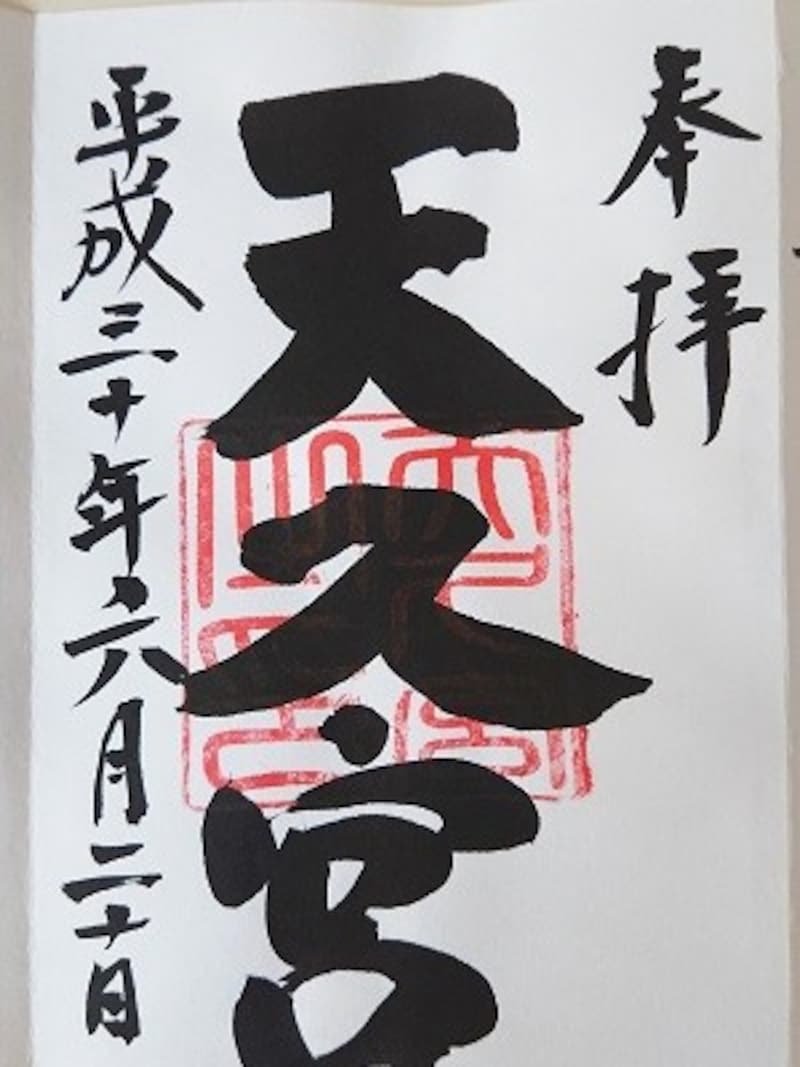 奉拝
天久宮
平成三十年六月二十日